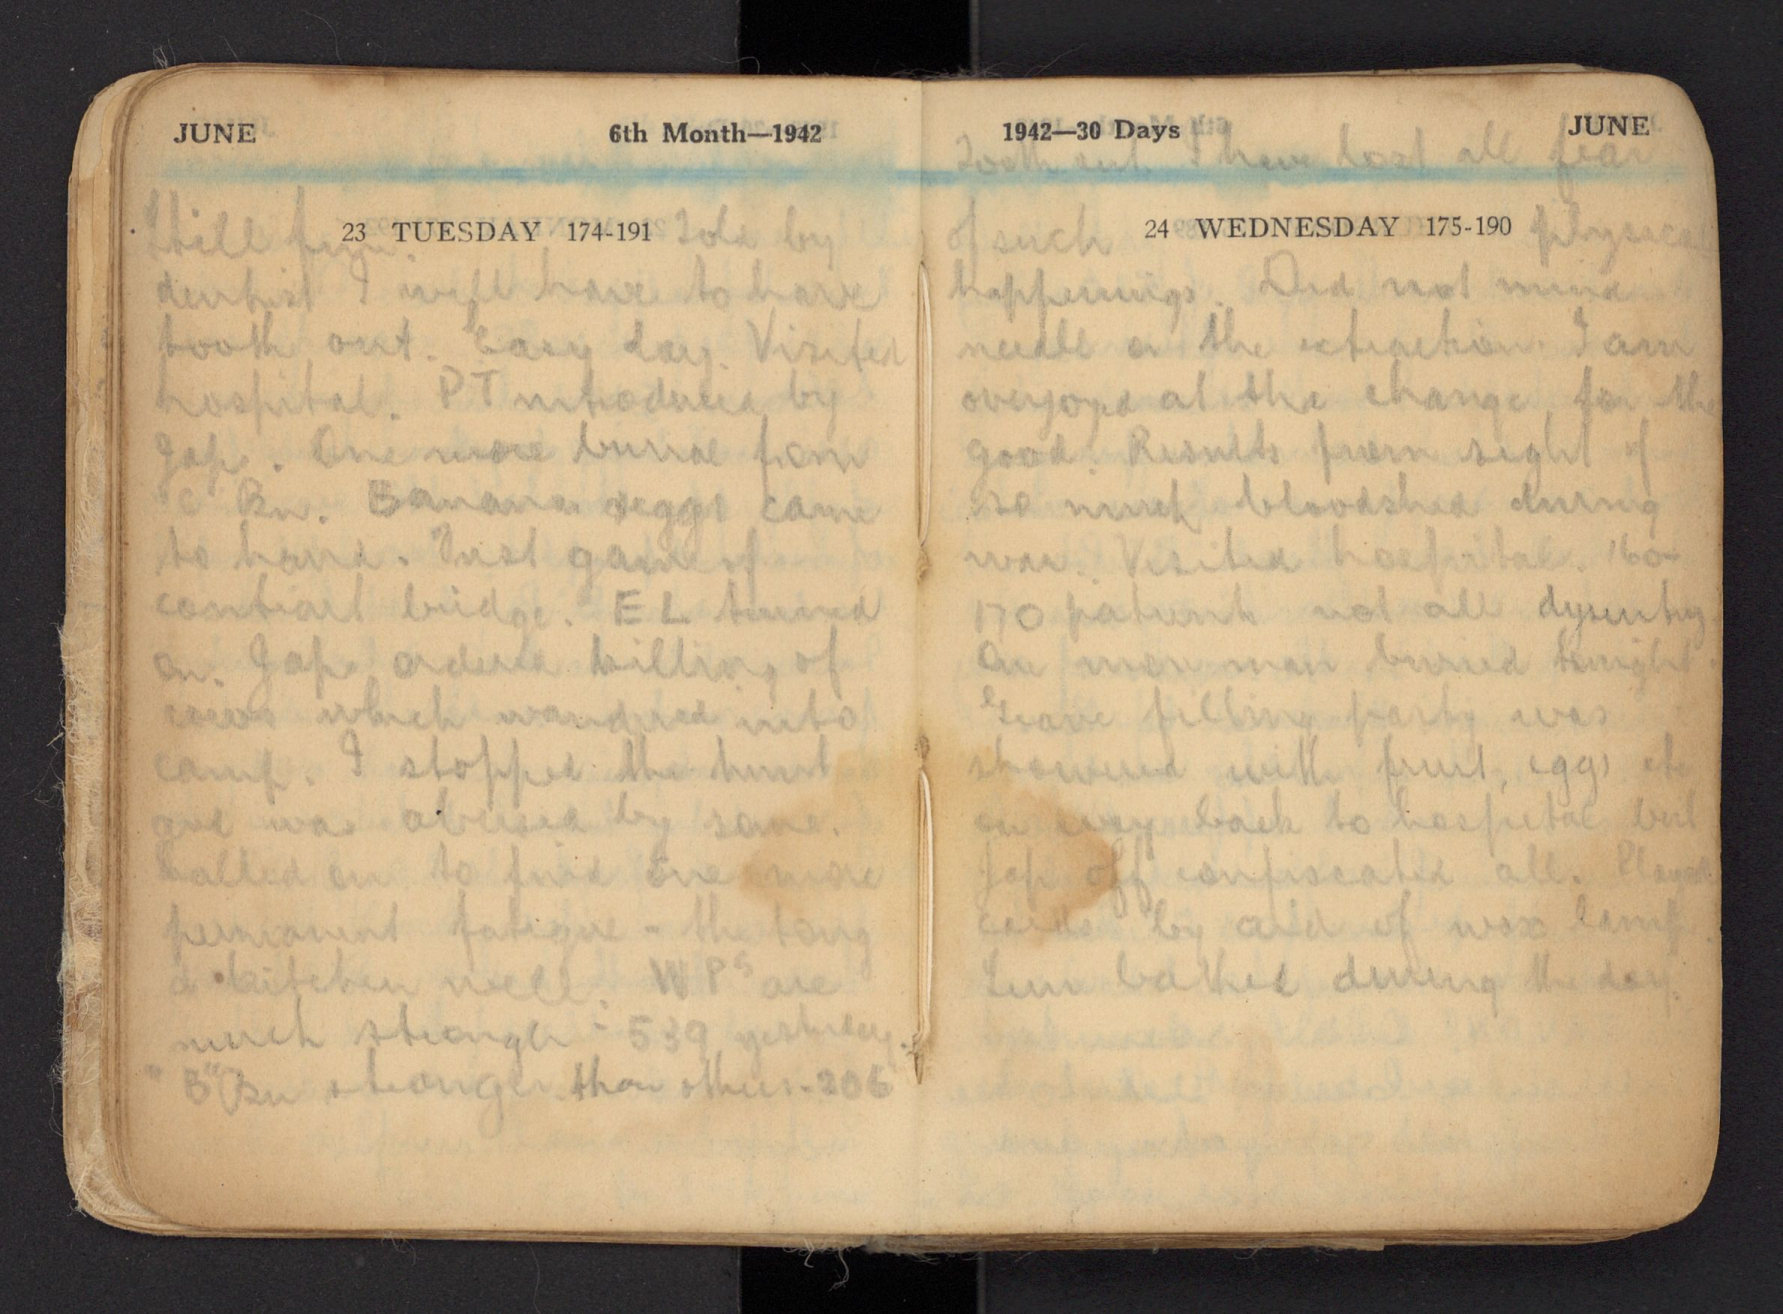 JUNE 6th Month—1942
23 TUESDAY 174-191
Still fine. Told by
dentist I will have to have
tooth out. Easy day. Visited
hospital. PT introduced by
Jap. One more burial from
"C" Bn. Banana & eggs came
to hand. First game of
contract bridge. E L turned
on. Jap ordered killing of
cows which wandered into
camp. I stopped the hunt
and was abused by some.
Called on to find one more
permanent fatigue - the tong
a kitchen well. WPs are
much stronger - 539 yesterday.
"B" Bn stronger than others - 206
1942—30 Days JUNE
Tooth out. I have lost all fear
24 WEDNESDAY 175-190
of such physical
happenings. Did not mind
needle or the extraction. I am
overjoyed at the change for the
good. Results from sight of
so much bloodshed during
war. Visited hospital. 160-
170 patients not all dysentry
One more man buried tonight.
Grave filling party was
showered with fruit, eggs etc
on way back to hospital but
Jap off confiscated all. Played
cards by aid of wax lamp.
Sun bathed during the day.